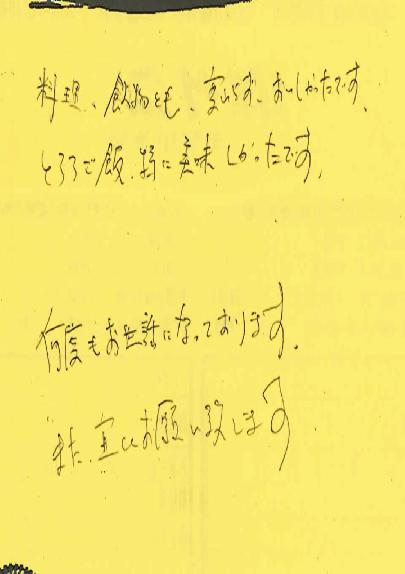 料理、飲物とも、変わらず、おいしかったです。
とろろご飯、特に美味しかったです。
何度もお世話になっております。
また、宜しくお願い致します